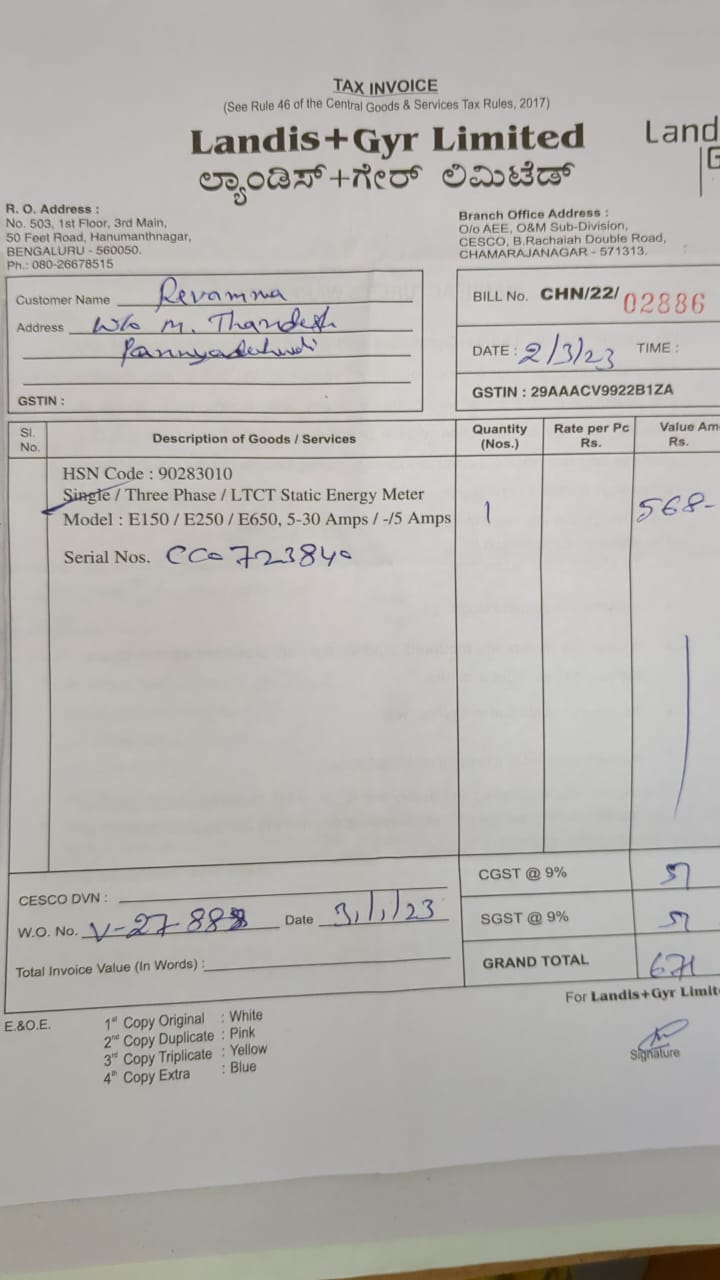 TAX INVOICE
(See Rule 46 of the Central Goods & Services Tax Rules, 2017)
Landis+Gyr Limited
Land
G
ಲ್ಯಾಂಡಿಸ್+ಗೇರ್ ಲಿಮಿಟೆಡ್
R. O. Address :
No. 503, 1st Floor, 3rd Main,
50 Feet Road, Hanumanthnagar,
BENGALURU - 560050.
Ph.: 080-26678515
Branch Office Address :
O/o AEE, O&M Sub-Division,
CESCO, B.Rachaiah Double Road,
CHAMARAJANAGAR - 571313.
Customer Name Revamma
Address W/o M.
GSTIN :
BILL No. CHN/22/ 02886
DATE : 2/3/23 TIME :
GSTIN : 29AAACV9922B1ZA
Sl. No. Description of Goods / Services Quantity (Nos.) Rate per Pc Rs. Value Am Rs.
HSN Code : 90283010
Single / Three Phase / LTCT Static Energy Meter
Model : E150 / E250 / E650, 5-30 Amps / -/5 Amps 1 568-
Serial Nos. CC0723840
CESCO DVN :
W.O. No. Date 3/1/23
Total Invoice Value (In Words) :
CGST @ 9% 51
SGST @ 9% 51
GRAND TOTAL 671
For Landis+Gyr Limit
Signature
E.&O.E.
1st Copy Original : White
2nd Copy Duplicate : Pink
3rd Copy Triplicate : Yellow
4th Copy Extra : Blue